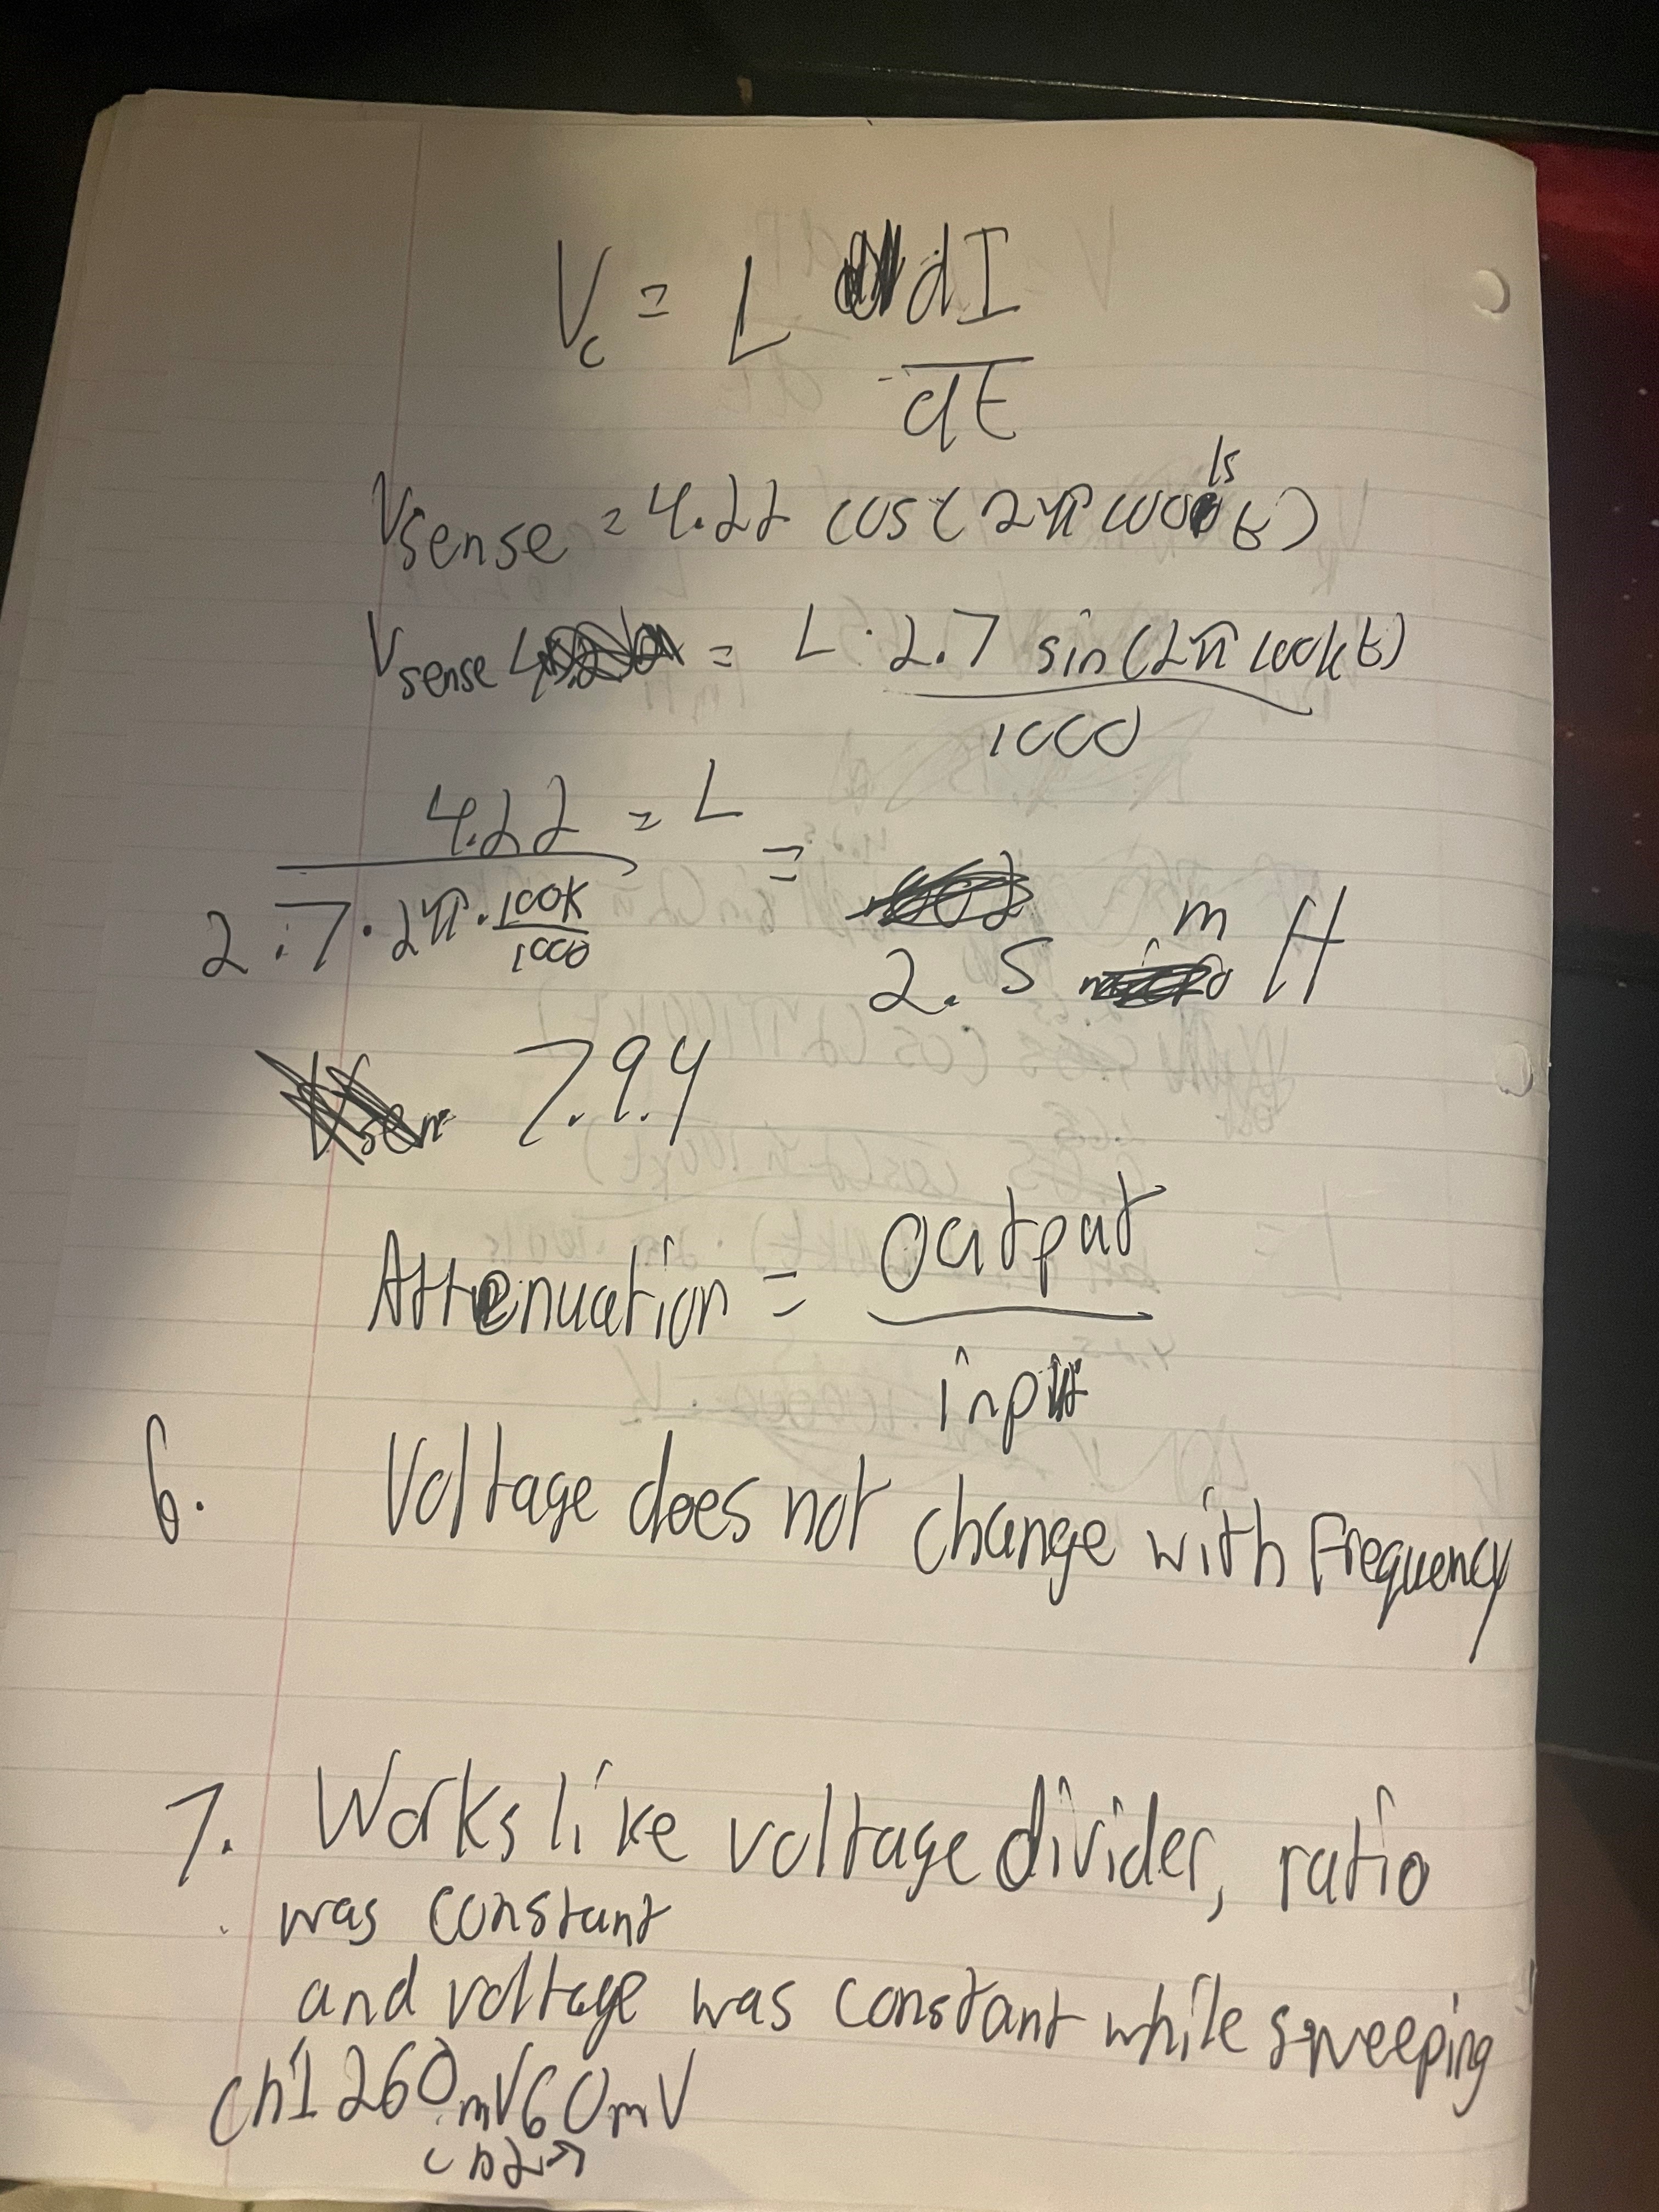 Vc = L dI/dt
Vsense = 4.22 cos(2π 100k t)
Vsense = L · 2.7 sin(2π 100kt) / 1000
4.22 / (2.7 · 2π · 100k/1000) = L = 2.5 m H
7.9.4
Attenuation = output / input
6. Voltage does not change with Frequency
7. Works like voltage divider, ratio
was constant
and voltage was constant while sweeping
ch1 260mV 60mV
ch2→